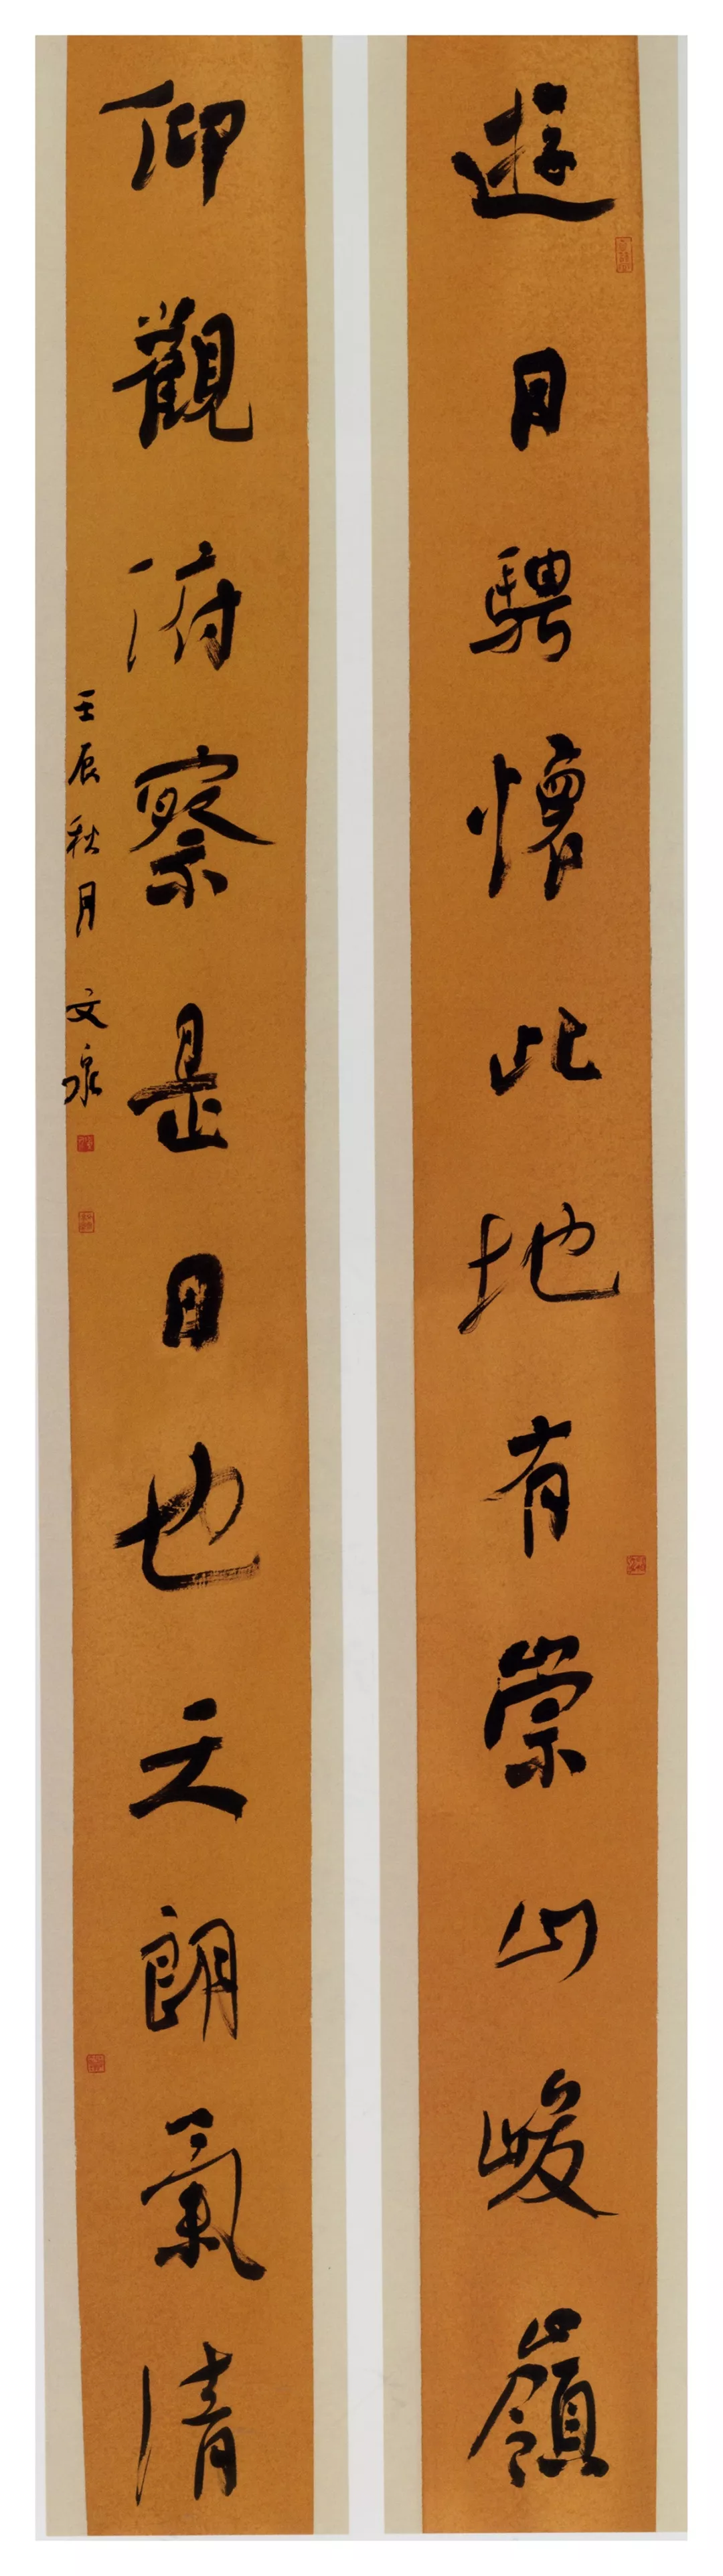 遊目騁懷此地有崇山峻嶺
仰觀俯察是日也天朗氣清
壬辰秋月 文泉